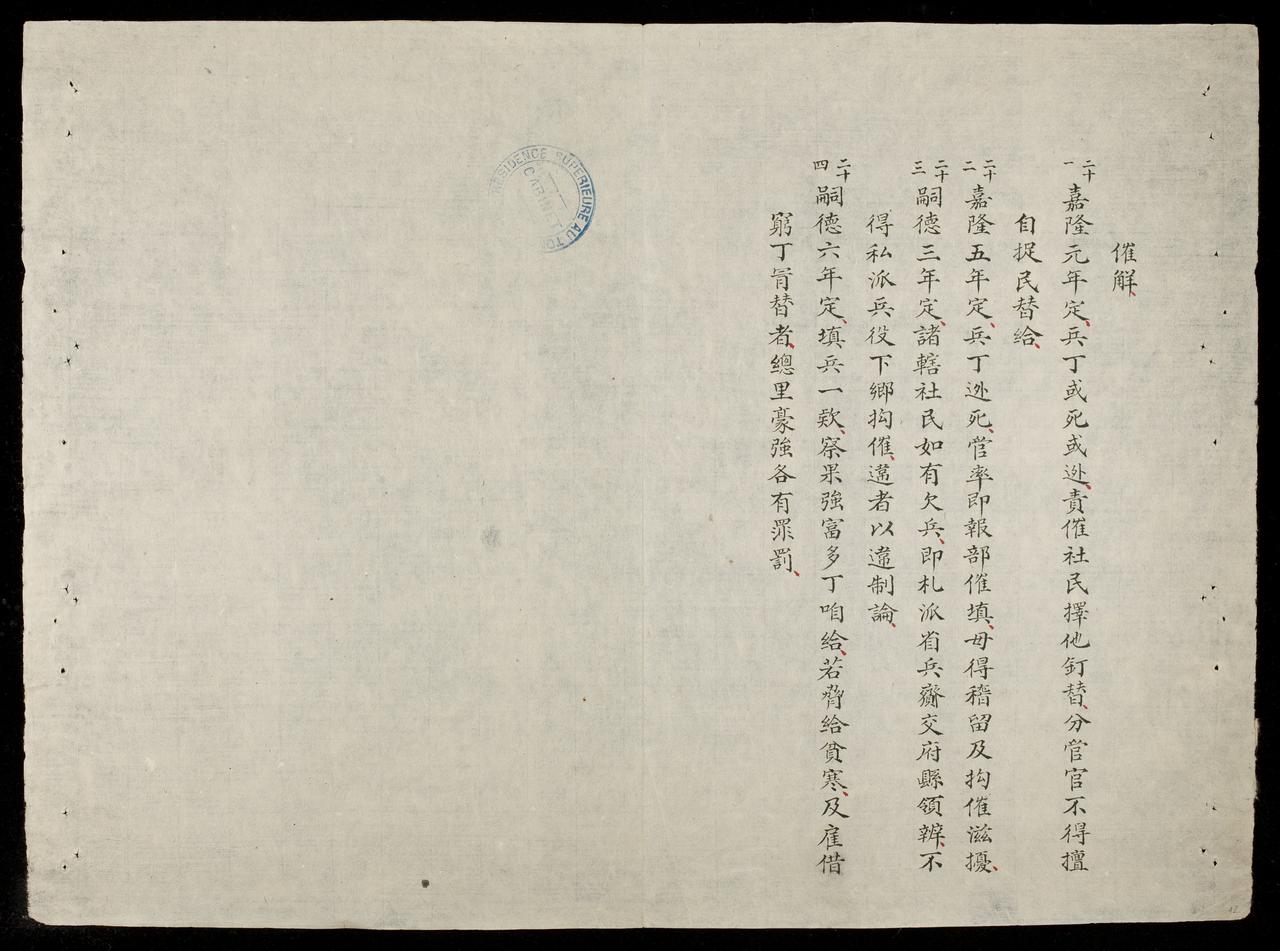 催解
二十一嘉隆元年定兵丁或死或迯責催社民擇他釘替分管官不得擅
自捉民替給
二十二嘉隆五年定兵丁迯死管率即報部催填毋得稽留及拘催滋擾
二十三嗣德三年定諸轄社民如有欠兵即札派省兵齎交府縣領辨不
得私派兵役下鄉拘催違者以違制論
二十四嗣德六年定填兵一欵察果強富多丁咱給若脅給貧寒及雇借
窮丁冒替者總里豪強各有罪罰
RESIDENCE SUPERIEURE AU TON
CABINET